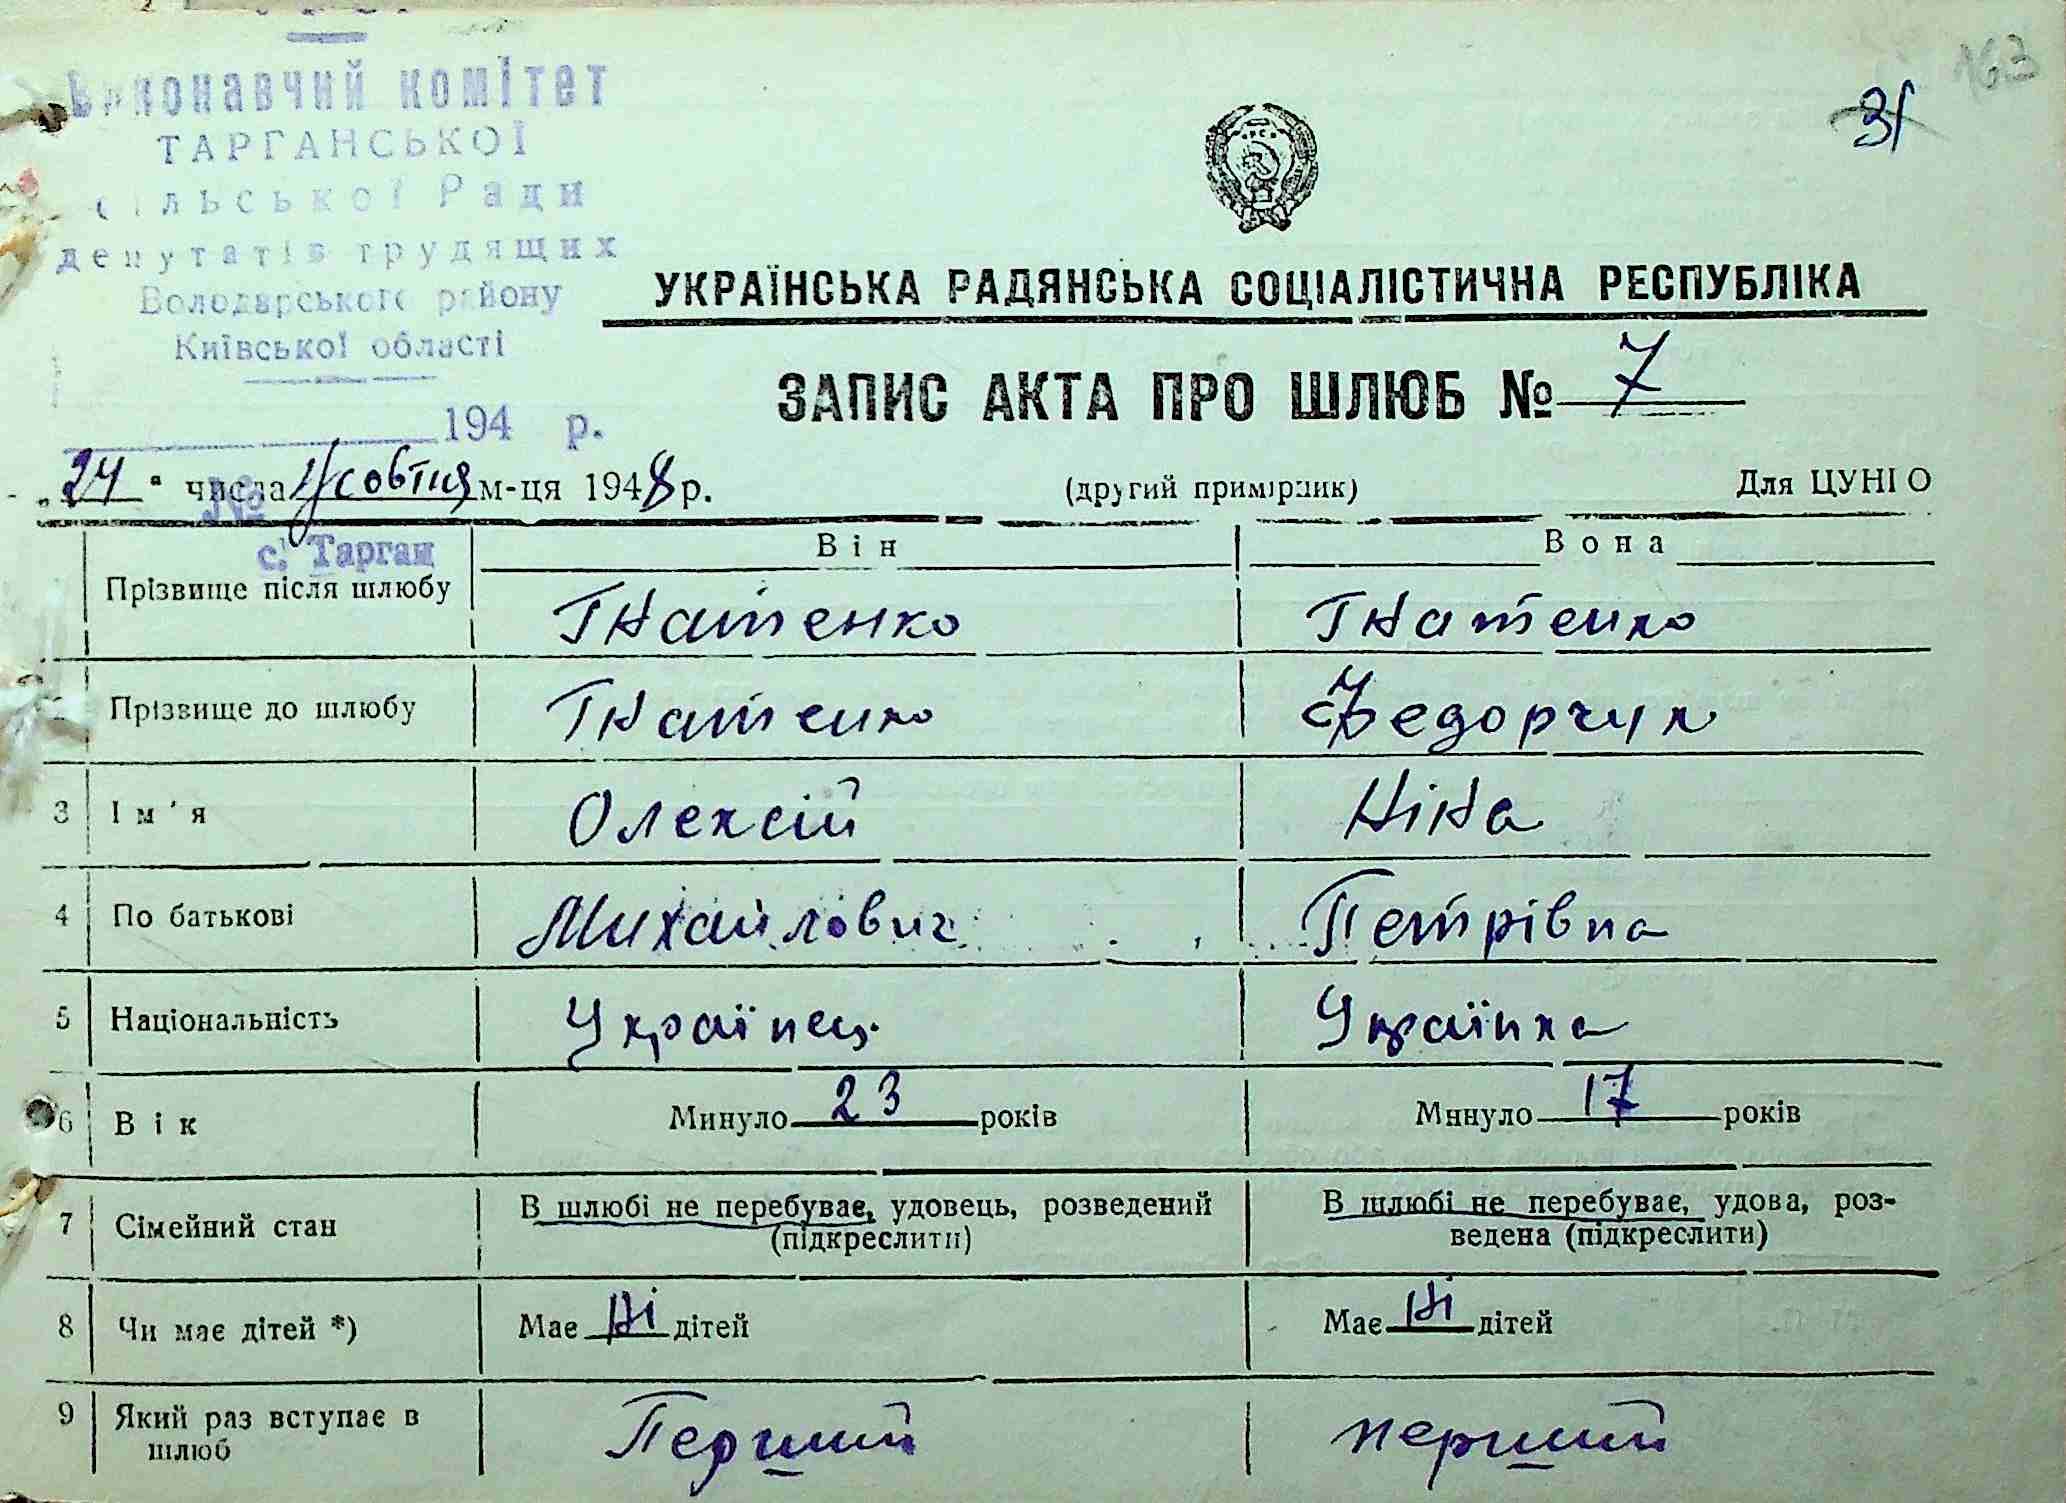 163
31
Виконавчий комітет
ТАРГАНСЬКОЇ
сільської Ради
депутатів трудящих
Володарського району
Київської області
194 р.
№
с. Тарган
УКРАЇНСЬКА РАДЯНСЬКА СОЦІАЛІСТИЧНА РЕСПУБЛІКА
ЗАПИС АКТА ПРО ШЛЮБ № 7
„24“ числа Жовтня м-ця 1948 р. (другий примірник) Для ЦУНГО
Він Вона
Прізвище після шлюбу Гнатенко Гнатенко
2 Прізвище до шлюбу Гнатенко Федорчук
3 Ім'я Олексій Ніна
4 По батькові Михайлович Петрівна
5 Національність Українець Українка
6 Вік Минуло 23 років Минуло 17 років
7 Сімейний стан В шлюбі не перебуває, удовець, розведений В шлюбі не перебуває, удова, роз-
(підкреслити) ведена (підкреслити)
8 Чи має дітей *) Має Ні дітей Має Ні дітей
9 Який раз вступає в Перший перший
шлюб